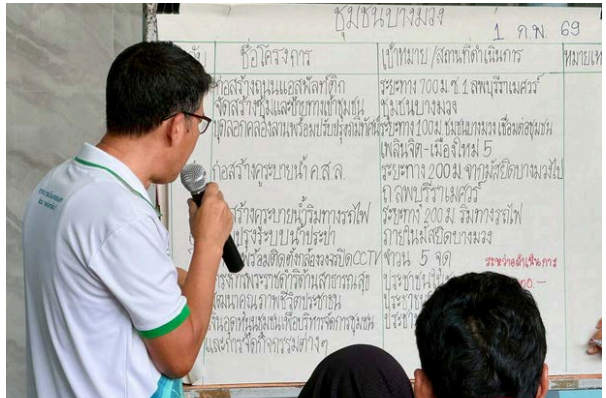 ชุมชนบางมวง
1 ก.พ. 69
ชื่อโครงการ
เป้าหมาย /สถานที่ดำเนินการ
หมายเห
ก่อสร้างถนนแอสฟัลท์ติก
ระยะทาง 700 ม. ซ. 1 ลพบุรีราเมศวร์
จัดสร้างซุ้มและป้ายทางเข้าชุมชน
ชุมชนบางมวง
ขุดลอกคลองลานพร้อมปรับปรุงภูมิทัศน์
ระยะทาง 100 ม. ชุมชนบางมวง เชื่อมต่อชุมชน
เพลินจิต-เมืองใหม่ 5
ก่อสร้างคูระบายน้ำ ค.ส.ล.
ระยะทาง 200 ม. จากมัสยิดบางมวงไป
ถ.ลพบุรีราเมศวร์
สร้างคูระบายน้ำริมทางรถไฟ
ระยะทาง 200 ม. ริมทางรถไฟ
ปรุงระบบน้ำประปา
ภายในมัสยิดบางมวง
พร้อมติดตั้งกล้องวงจรปิด CCTV
จำนวน 5 จุด
ระหว่างดำเนินการ
โครงการพระราชดำริด้านสาธารณสุข
00.-
พัฒนาคุณภาพชีวิตประชาชน
เงินอุดหนุนชุมชนเพื่อบริหารจัดการชุมชน
และการจัดกิจกรรมต่างๆ